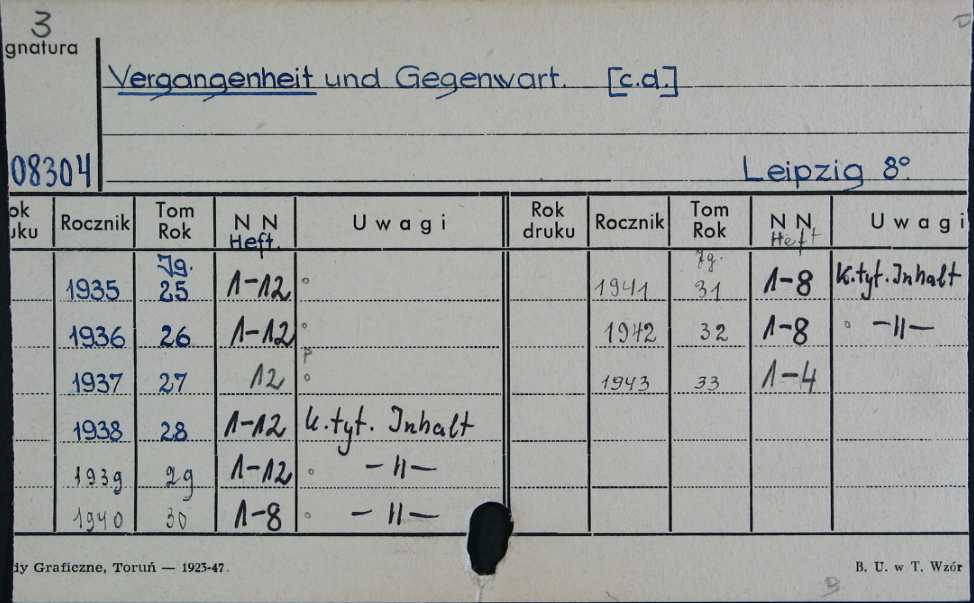 3
gnatura
Vergangenheit und Gegenwart. [c.d.]
08304
Leipzig 8°.
ok uku Rocznik Tom Rok N N Heft. Uwagi Rok druku Rocznik Tom Rok N N Heft Uwagi
1935 Jg. 25 1-12 ° 1941 Jg. 31 1-8 K.tyt. Inhalt
1936 26 1-12 ° 1942 32 1-8 ° -11-
1937 27 12 p ° 1943 33 1-4
1938 28 1-12 K.tyt. Inhalt
1939 29 1-12 ° -11-
1940 30 1-8 ° -11-
dy Graficzne, Toruń — 1923-47. B. U. w T. Wzór
B